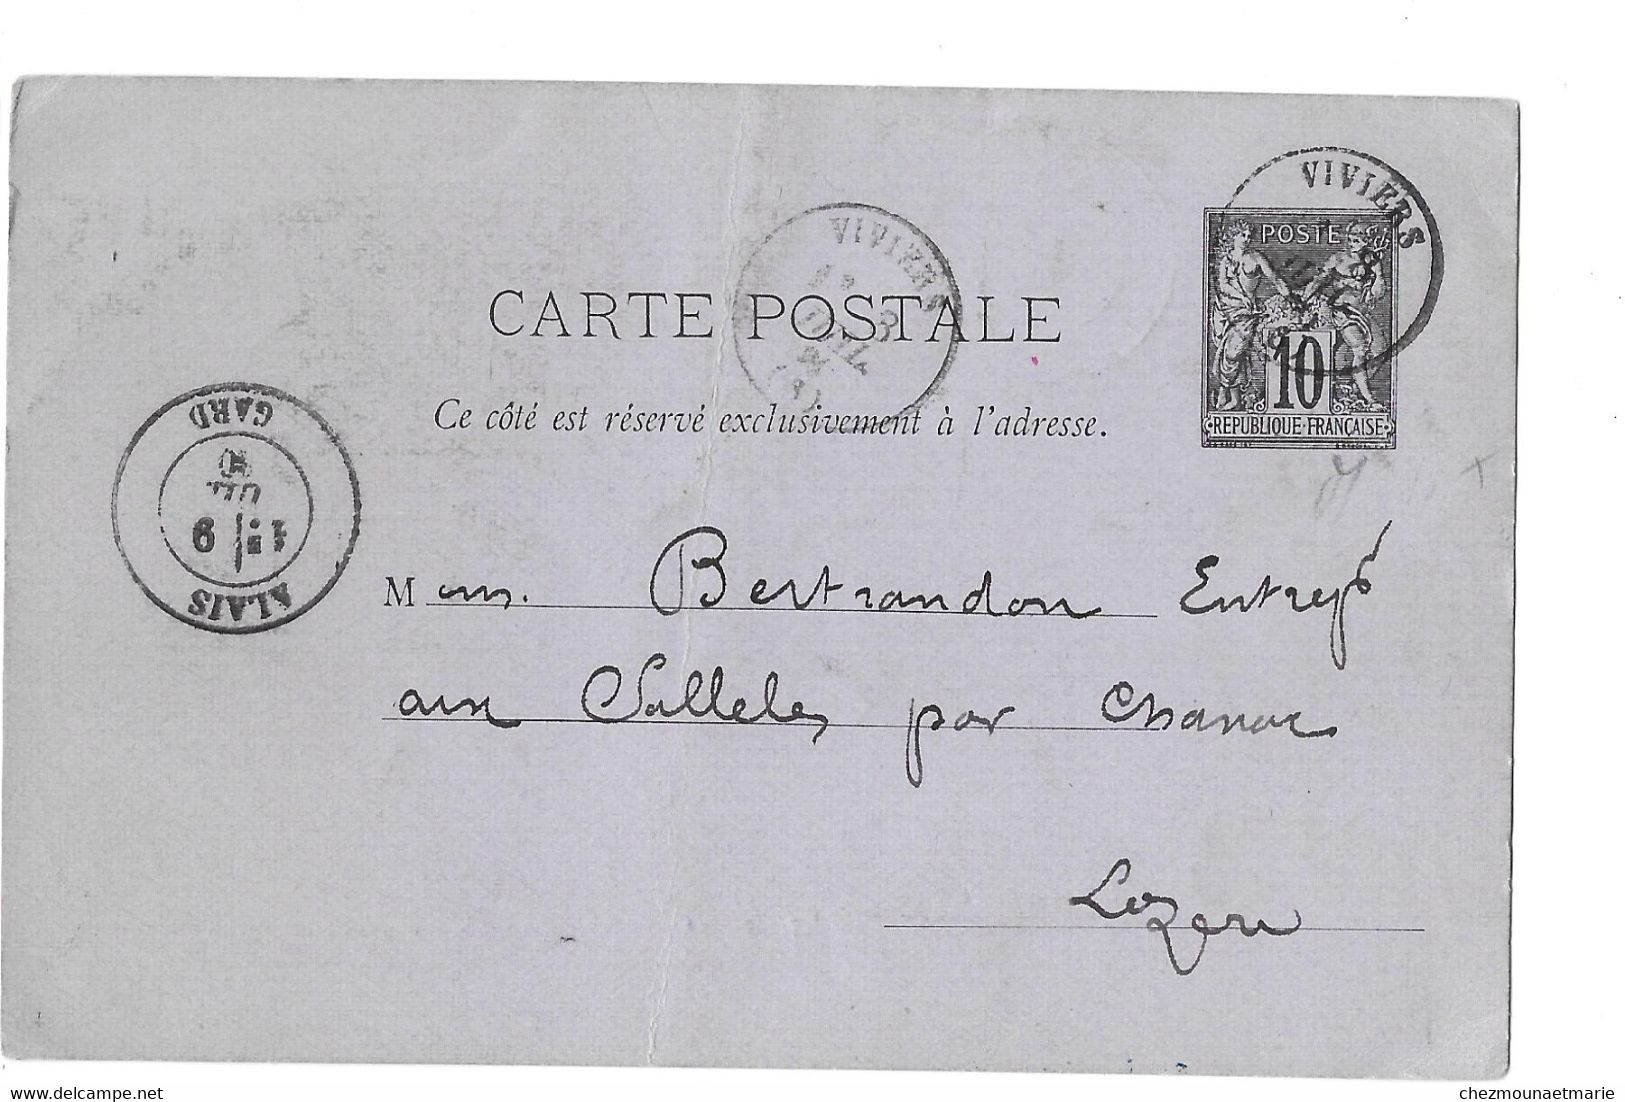 VIVIERS
POSTE
10
REPUBLIQUE FRANÇAISE
VIVIERS
8
JUIL
CARTE POSTALE
Ce côté est réservé exclusivement à l'adresse.
ALAIS
9
JUIL
GARD
M Bertrandon Entrep
aux Salleles par Chanac
Lozère
chezmounaetmarie